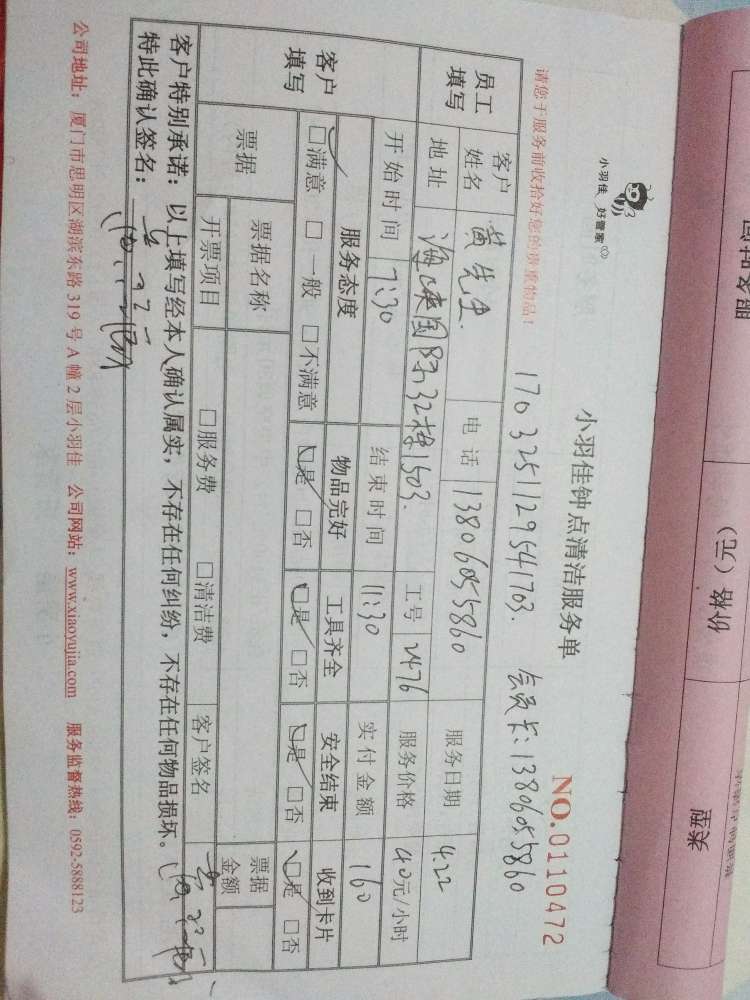 小羽佳 好管家
小羽佳钟点清洁服务单
NO.0110472
请您于服务前收拾好您的贵重物品！
1703251129541703. 会员卡：13806055860
员工填写 客户姓名 黄先生 电话 13806055860 服务日期 4.22
地址 32栋1503. 工号 2476 服务价格 40元/小时
客户填写 开始时间 7:30 结束时间 11:30 实付金额 160
服务态度 物品完好 工具齐全 安全结束 收到卡片
□满意 □一般 □不满意 □是 □否 □是 □否 □是 □否 □是 □否
票据 票据名称 票据金额
开票项目 □服务费 □清洁费 客户签名
客户特别承诺：以上填写经本人确认属实，不存在任何纠纷，不存在任何物品损坏。
特此确认签名：
公司地址：厦门市思明区湖滨东路319号A幢2层小羽佳 公司网站：www.xiaoyujia.com 服务监督热线：0592-5888123
价格（元）
类型